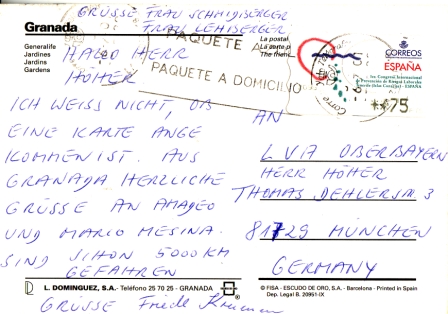 GRÜSSE FRAU SCHMIDBERGER
FRAU LEHBERGER
Granada
Generalife
Jardines
Jardins
Gardens
La postal
La carte p
The
HALLO HERR
HÖHER
ICH WEISS NICHT, OB
EINE KARTE ANGE
KOMMEN IST. AUS
GRANADA HERZLICHE
GRÜSSE AN AMADEO
UND MARIO MESINA.
SIND SCHON 5000 KM
GEFAHREN
GRÜSSE Friedl
PAQUETE
PAQUETE A DOMICILIO
CORREOS
ESPAÑA
1er. Congreso Internacional
Prevención de Riesgo Laboral
ESPAÑA
75
AN
LVA OBERBAYERN
HERR HÖHER
THOMAS DEHLERSTR 3
81729 MÜNCHEN
GERMANY
L. DOMINGUEZ, S.A.- Telefono 25 70 25 - GRANADA
© FISA - ESCUDO DE ORO, S.A. - Barcelona - Printed in Spain
Dep. Legal B. 20951-IX